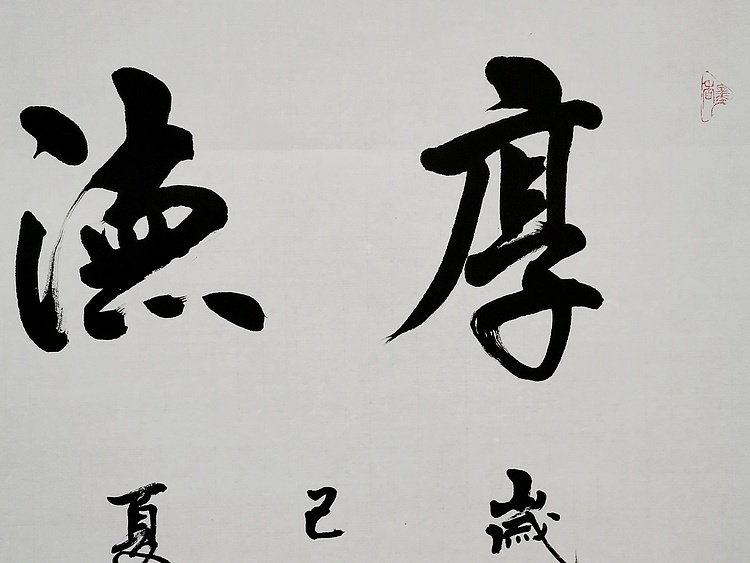 厚德
嵗
己
夏